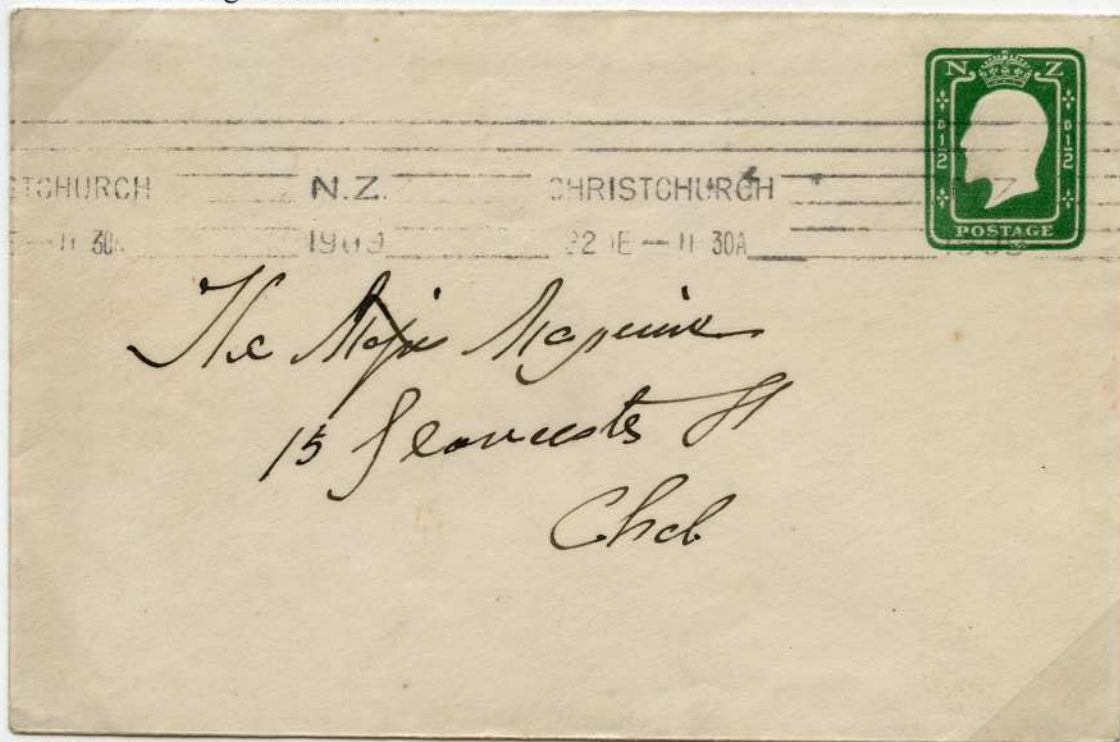 N Z
D ½ D ½
POSTAGE
STCHURCH N.Z. CHRISTCHURCH N.Z.
11 30A 1909 22 DE — 11 30A
The Magazine
15 Gloucester St
Chch